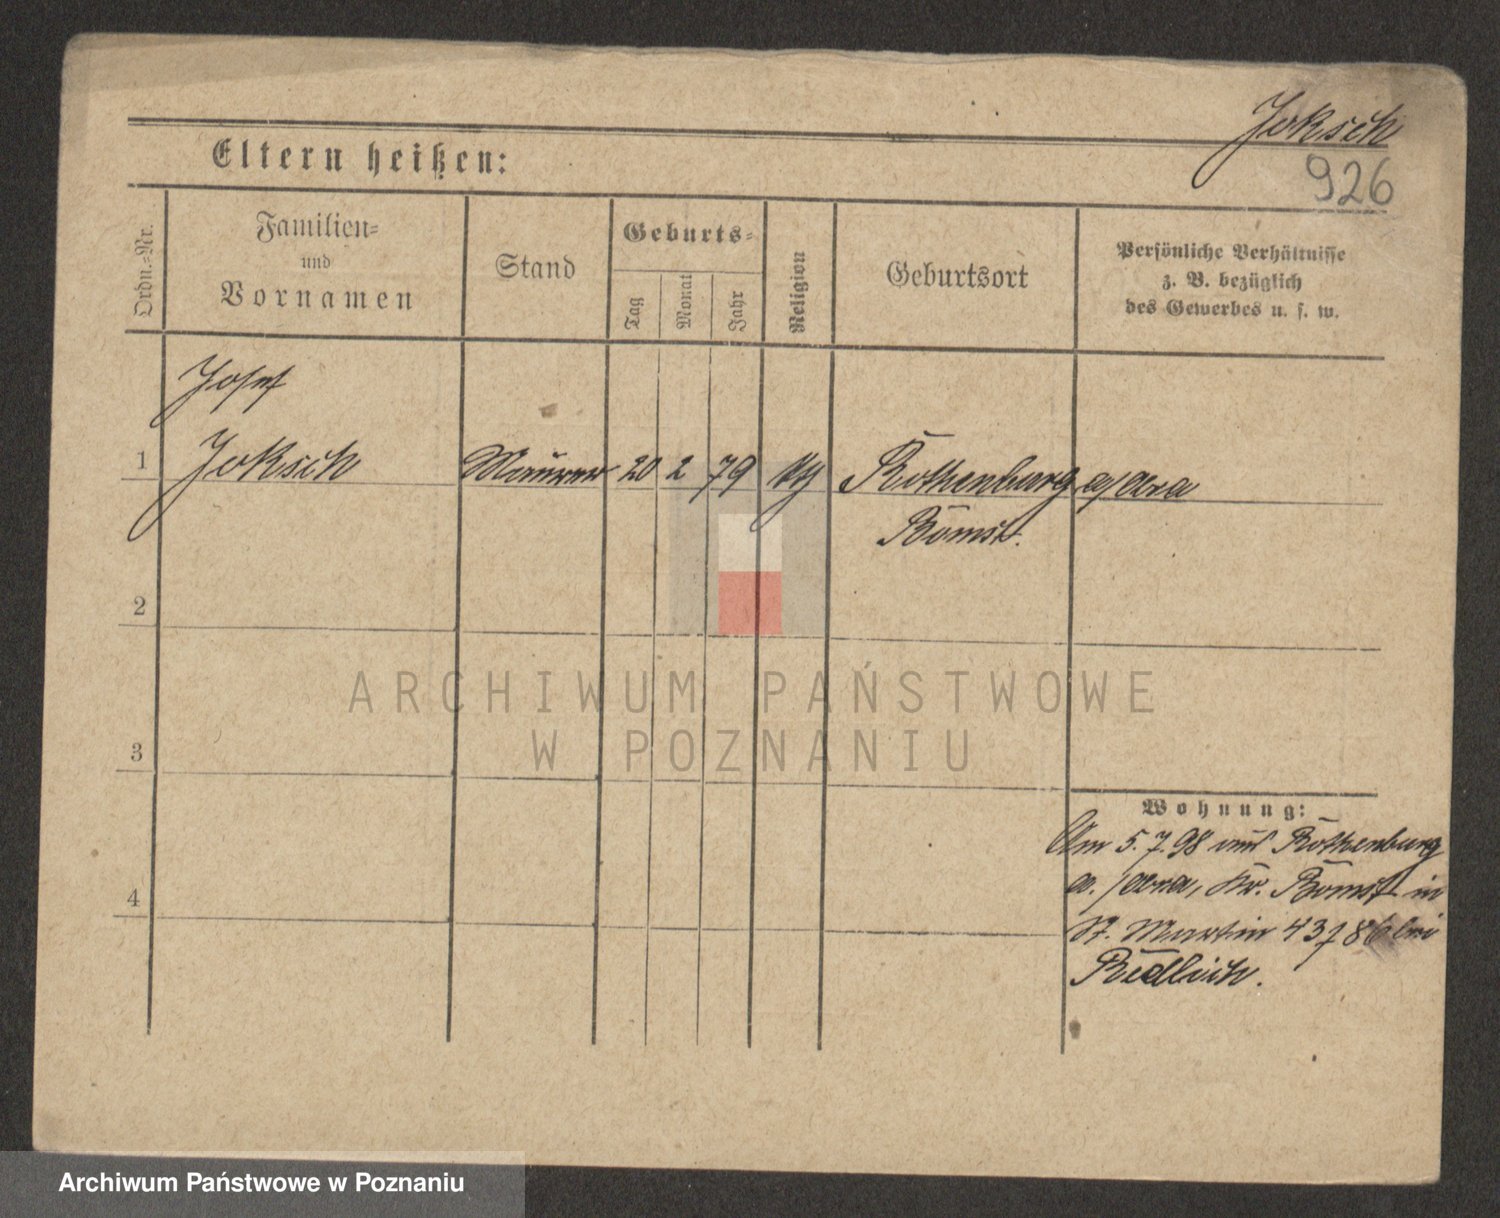 Joksch
926
Eltern heißen:
Ordn.-Nr.
Familien-
und
Vornamen
Stand
Geburts-
Tag
Monat
Jahr
Religion
Geburtsort
Persönliche Verhältnisse
z. B. bezüglich
des Gewerbes u. s. w.
Josef
1 Joksch Maurer 20 2 79 kth Rothenburg a/Obra
Bomst.
2
ARCHIWUM PAŃSTWOWE
W POZNANIU
3
Wohnung:
Am 5.7.98 aus Rothenburg
a./Obra, Kr. Bomst in
4
St. Martin 43 bei
Redlich.
Archiwum Państwowe w Poznaniu